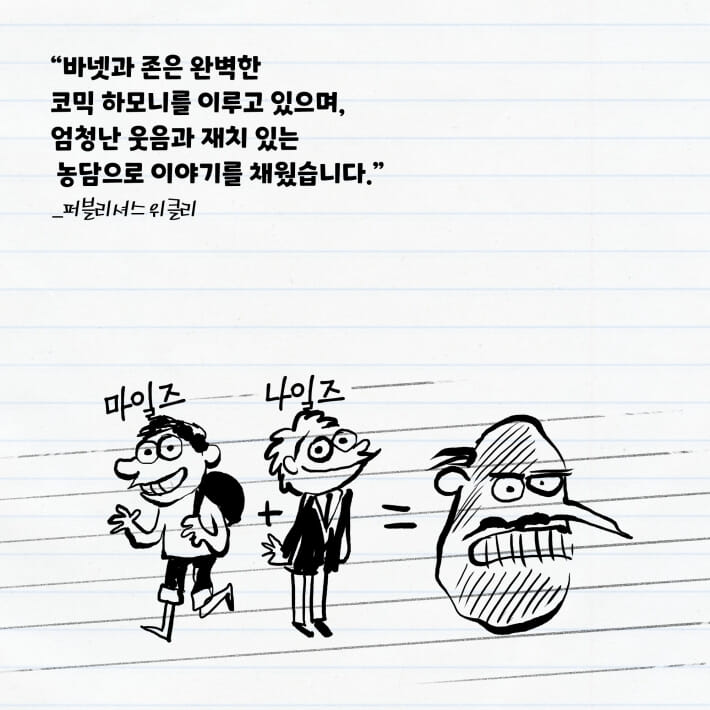 “바넷과 존은 완벽한
코믹 하모니를 이루고 있으며,
엄청난 웃음과 재치 있는
농담으로 이야기를 채웠습니다.”
_퍼블리셔스 위클리
마일즈
나일즈
+ =